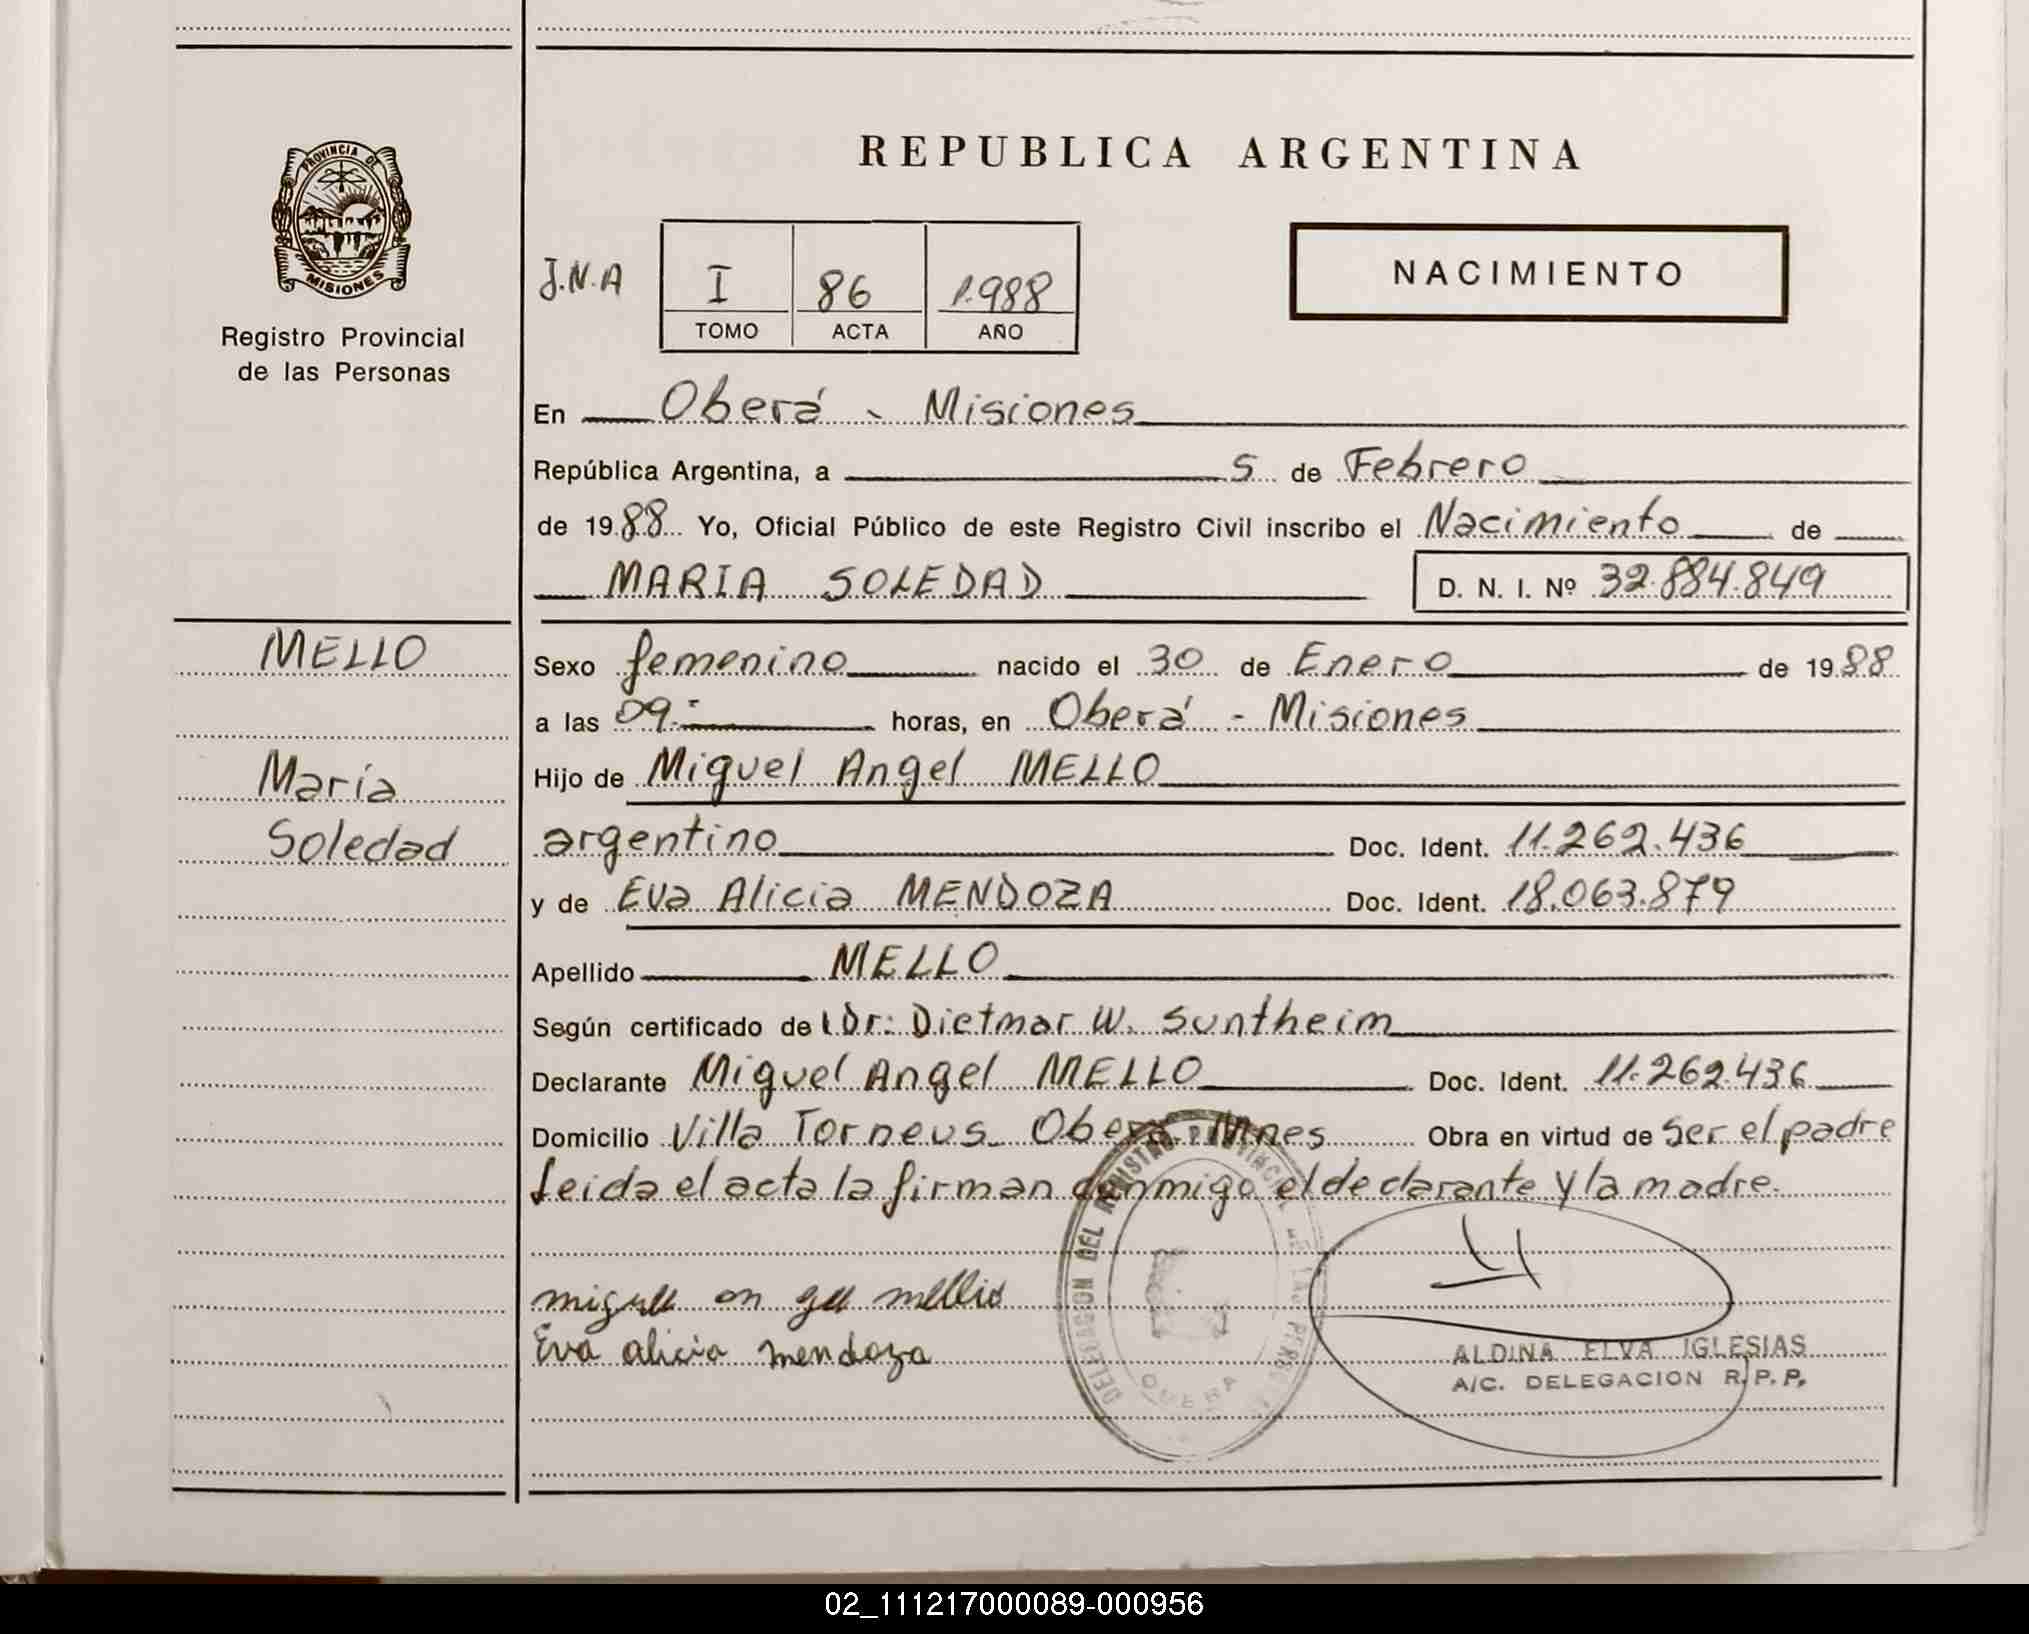 REPUBLICA ARGENTINA
PROVINCIA DE
MISIONES
Registro Provincial
de las Personas
J.N.A
I 86 1.988
TOMO ACTA AÑO
NACIMIENTO
En Oberá - Misiones
República Argentina, a 5 de Febrero
de 1988 Yo, Oficial Público de este Registro Civil inscribo el Nacimiento de
MARIA SOLEDAD D. N. I. Nº 32.884.849
MELLO
María
Soledad
Sexo femenino nacido el 30 de Enero de 1988
a las 09.- horas, en Oberá - Misiones
Hijo de Miguel Angel MELLO
argentino Doc. Ident. 11.262.436
y de Eva Alicia MENDOZA Doc. Ident. 18.063.879
Apellido MELLO
Según certificado de Dr: Dietmar W. Suntheim
Declarante Miguel Angel MELLO Doc. Ident. 11.262.436
Domicilio Villa Torneus Oberá Mnes Obra en virtud de Ser el padre
Leida el acta la firman conmigo el declarante y la madre.
DELEGACION DEL REGISTRO PROVINCIAL DE LAS PERSONAS
Eva alicia mendoza
ALDINA ELVA IGLESIAS
A/C. DELEGACION R.P.P.
02_111217000089-000956